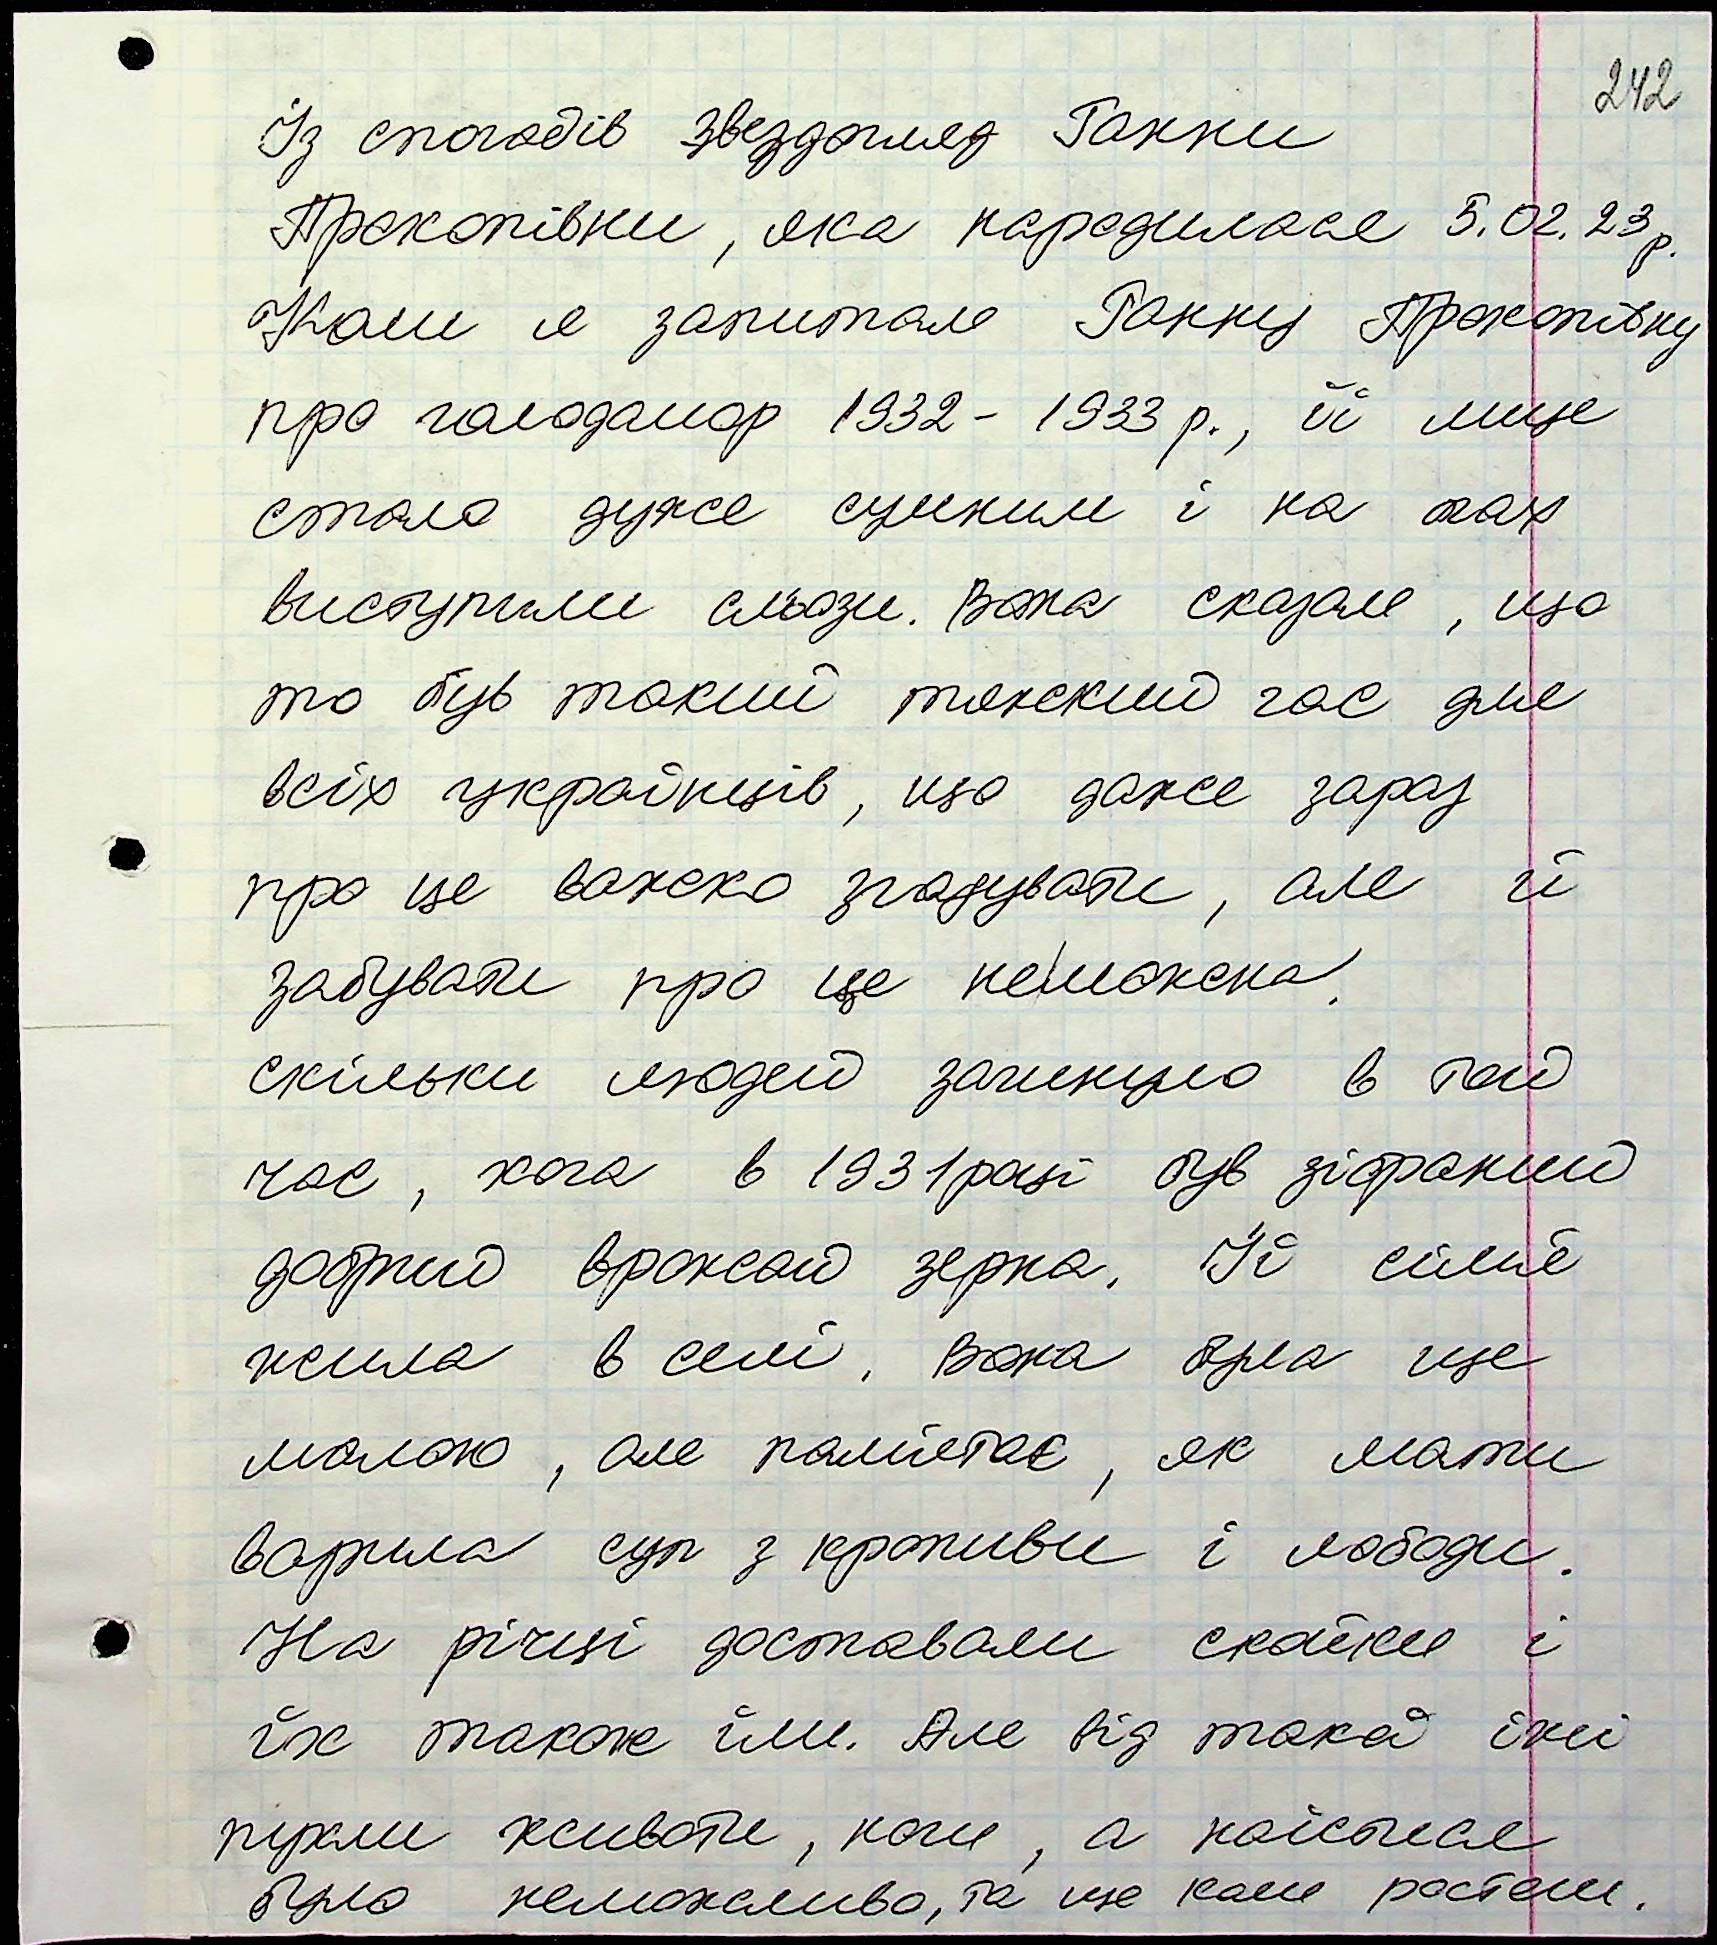 242
Із спогадів Звездогляд Ганни
Прокопівни, яка народилася 5.02.23 р.
Коли я запитала Ганну Прокопівну
про голодомор 1932-1933 р., її лице
стало дуже сумним і на очах
виступили сльози. Вона сказала, що
то був такий тяжкий час для
всіх українців, що даже зараз
про це важко згадувати, але й
забувати про це не можна.
Скільки людей загинуло в той
час, хоча в 1931 році був зібраний
добрий врожай зерна. Її сім'я
жила в селі. Вона була ще
малою, але пам'ятає, як мати
варила суп з кропиви і лободи.
На річці доставали скойки і
їх також їли. Але від такої їжі
пухли животи, ноги, а наїстися
було неможливо, та ще коли ростеш.